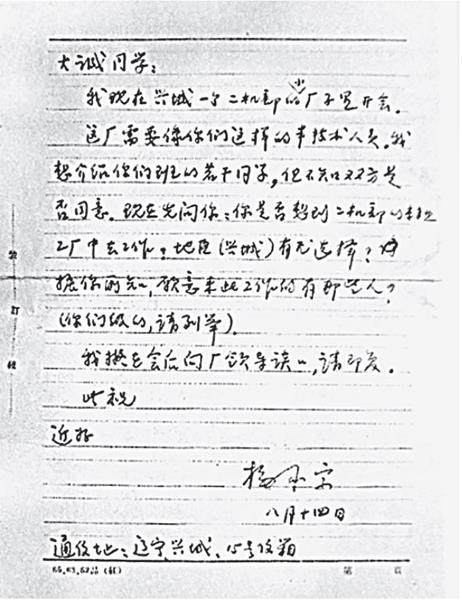 大诚同学:
我现在兴城一个二机部的小厂子里开会。
这厂需要像你们这样的青技术人员。我
想介绍你们班的若干同学,但不知双方是
否同意。现在先问你:你是否想到二机部的
工厂中去工作?地区(兴城)有无选择?
据你所知,愿意来此工作的有那些人?
(你们级的,请列举)。
我拟在会后向厂领导谈一,请即复。
此祝
近好
杨
八月十四日
通信地:辽宁兴城,信箱
装
订
线
65.63.52品(红) 第 页